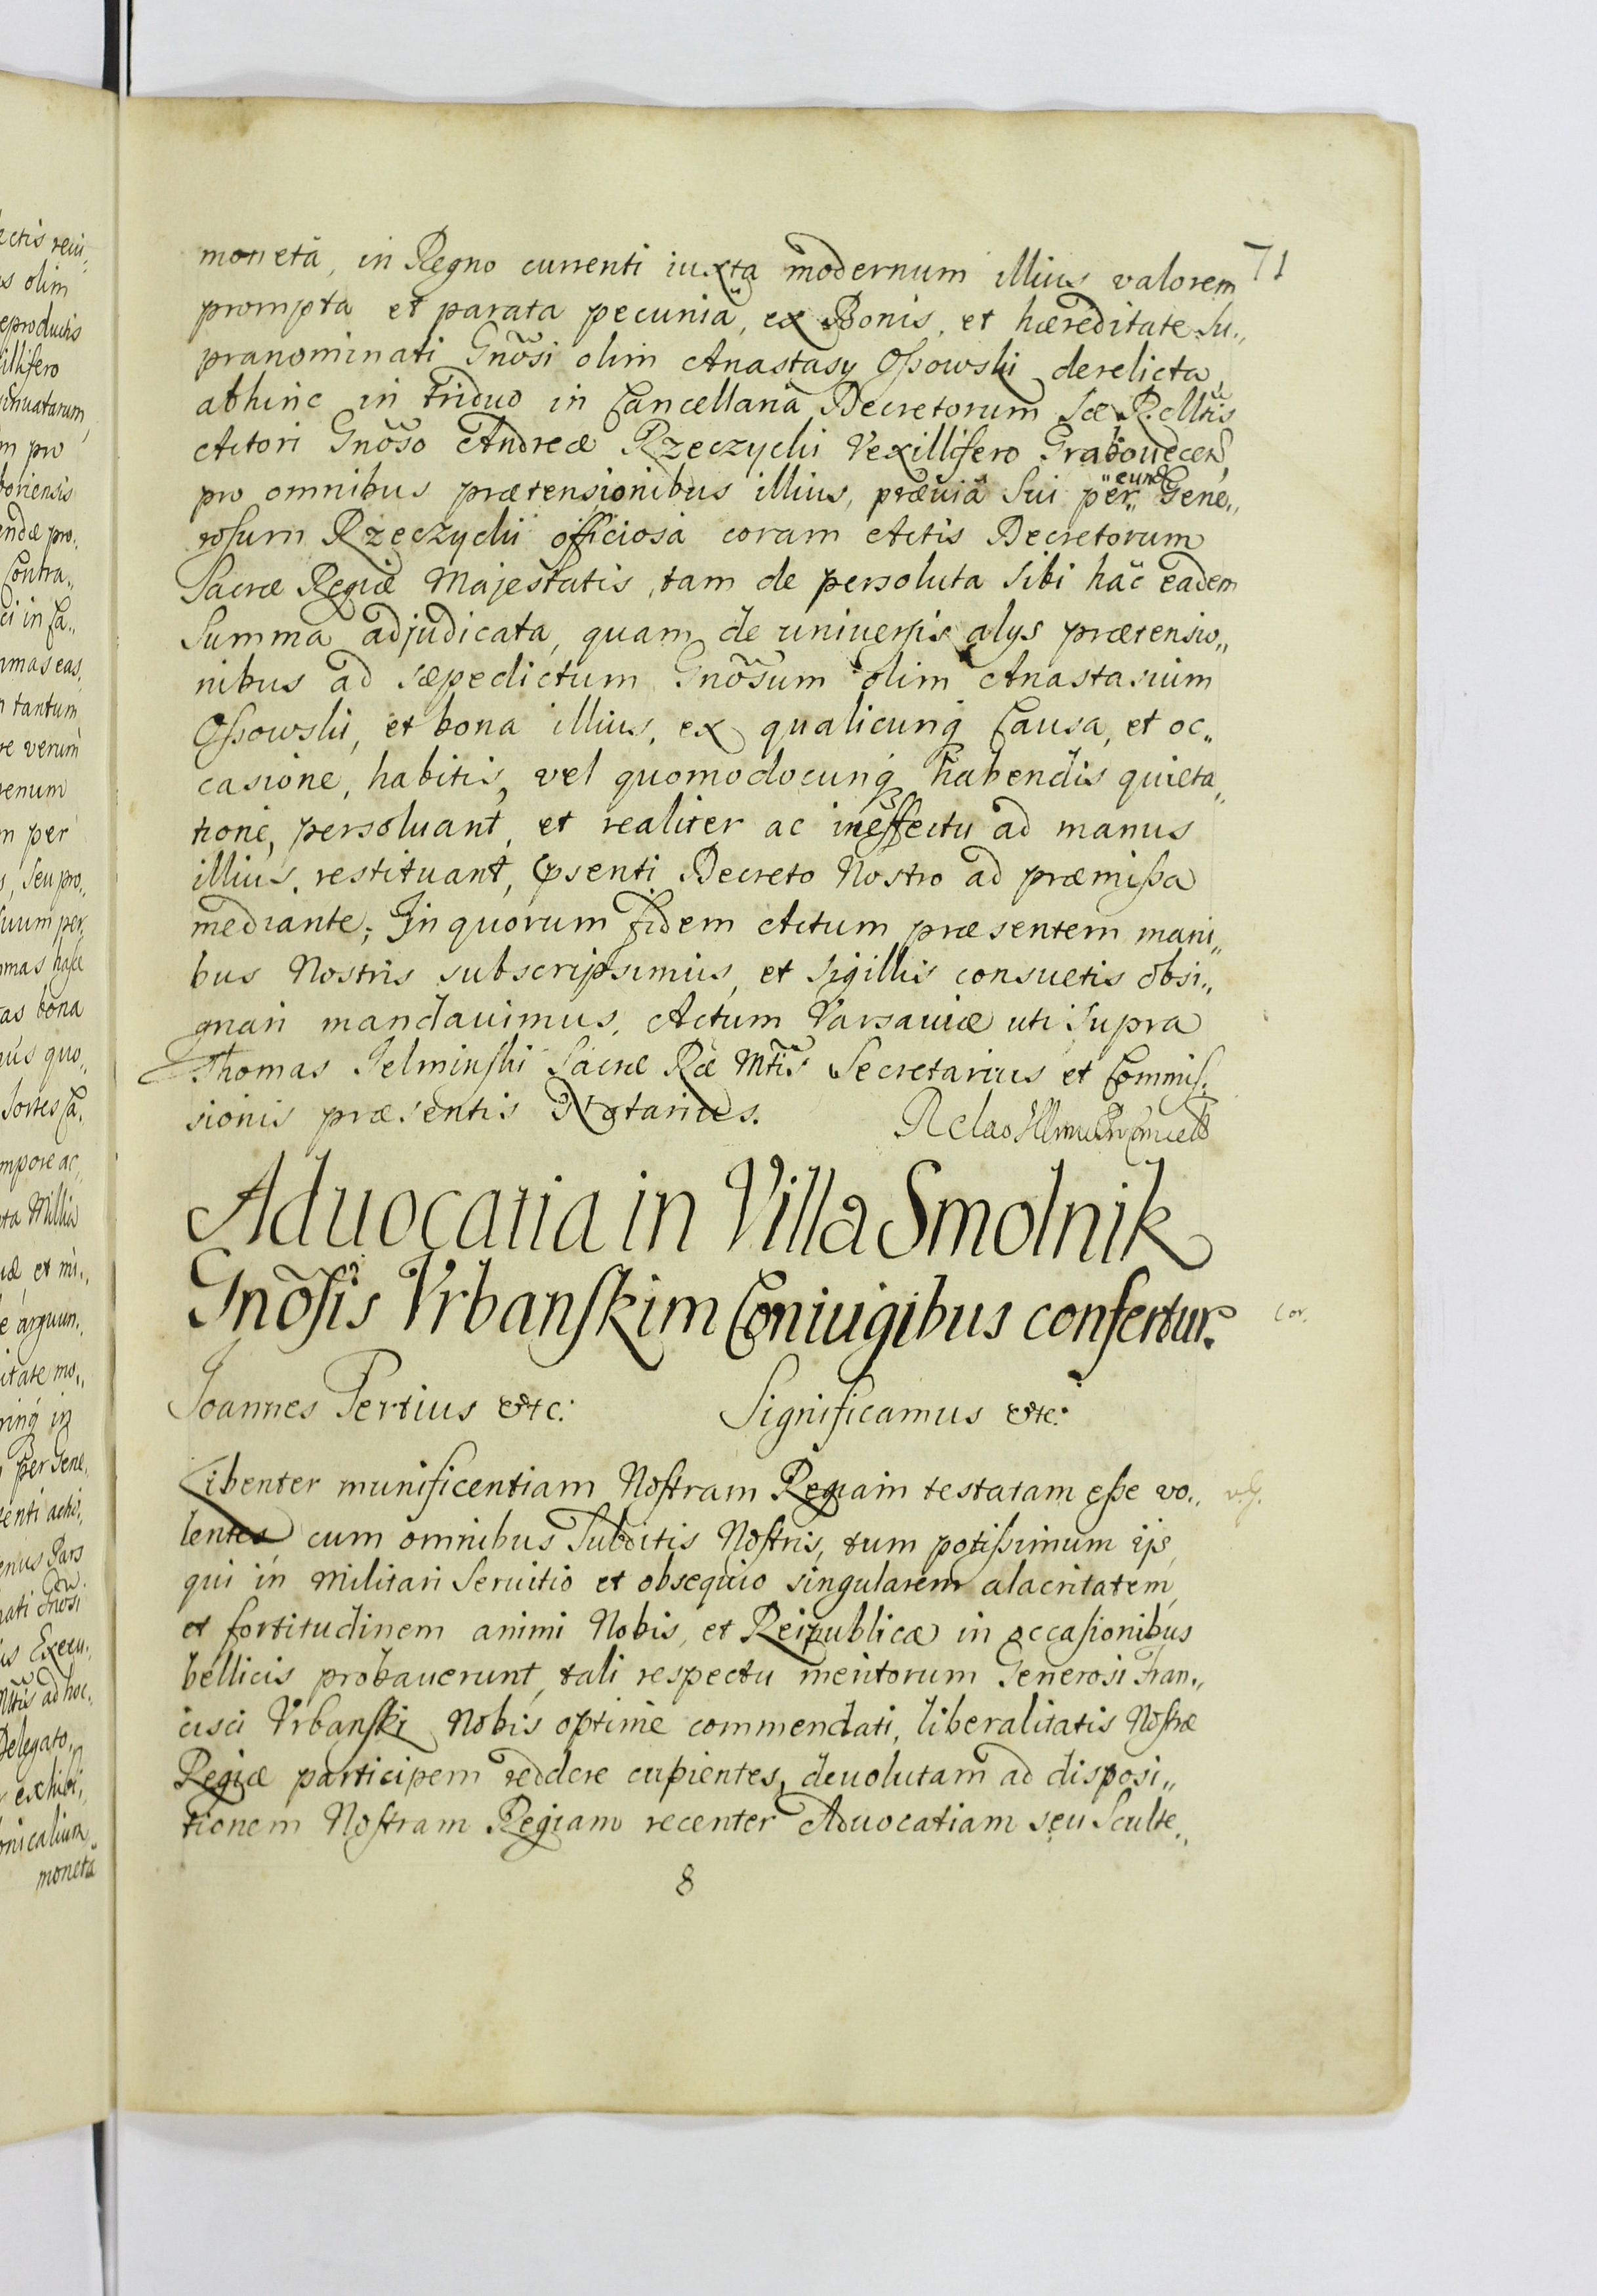 71
monetâ, in Regno currenti iuxta modernum illius valorem
prompta et parata pecuniâ, ex Bonis, et hæreditate su„
pranominati Gnõsi olim Anastasy Ossowski derelicta,
abhinc in triduo in Cancellariâ Decretorum Sæ R. Mttis
Actori Gnõso Andreæ Rzeczycki Vexillifero Grabouecen,
pro omnibus prætensionibus illius, præuiâ sui per eund Gene„
rosum Rzeczycki officiosâ coram Actis Decretorum
Sacræ Regiæ Majestatis, tam de persoluta sibi hac eadem
Summa adjudicata, quam de uniuersis alys prætensio„
nibus ad sæpedictum Gnõsum olim Anastasium
Ossowski, et bona illius, ex qualicunq Causa, et oc„
casione, habitis, vel quomodocunq habendis quieta„
tione, persoluant, et realiter ac in effectu ad manus
illius, restituant, psenti Decreto Nostro ad præmissa
mediante; In quorum fidem Actum præsentem mani„
bus Nostris subscripsimus, et Sigillis consuetis obsi„
gnari mandauimus. Actum Varsauiæ uti supra
Thomas Jelminski Sacræ Ræ Mttis Secretarius et Commis„
sionis præsentis Notarius.
Aduocatia in Villa Smolnik
Gnõsis Vrbanskim Coniugibus confertur.
Cor.
Joannes Tertius etc: Significamus etc:
Libenter munificentiam Nostram Regiam testatam esse vo„
lentes cum omnibus Subditis Nostris, tum potissimum ijs,
qui in Militari Seruitio et obsequio singularem alacritatem,
et fortitudinem animi Nobis, et Reipublicæ in occasionibus
bellicis probauerunt, tali respectu meritorum Generosi Fran„
cisci Vrbanski Nobis optime commendati, liberalitatis Nostræ
Regiæ participem reddere cupientes, deuolutam ad disposi„
tionem Nostram Regiam recenter Aduocatiam seu Sculte„
8